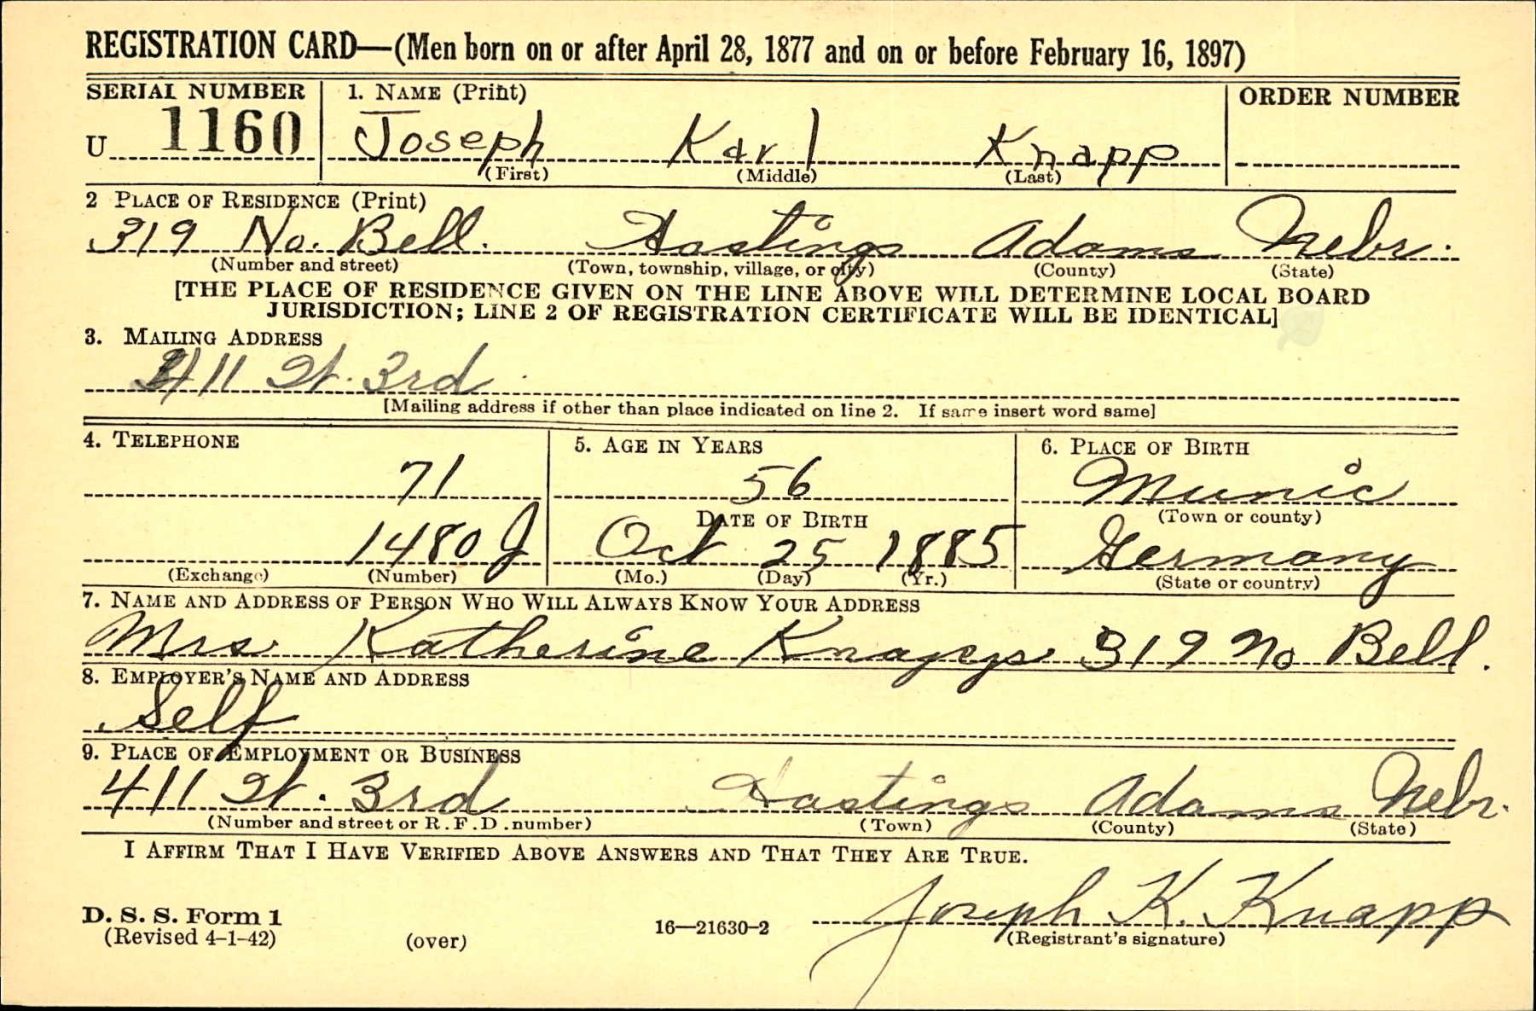 REGISTRATION CARD—(Men born on or after April 28, 1877 and on or before February 16, 1897)
SERIAL NUMBER 1. NAME (Print) ORDER NUMBER
U 1160 Joseph Karl Knapp
(First) (Middle) (Last)
2 PLACE OF RESIDENCE (Print)
319 No. Bell. Hastings Adams Nebr.
(Number and street) (Town, township, village, or city) (County) (State)
[THE PLACE OF RESIDENCE GIVEN ON THE LINE ABOVE WILL DETERMINE LOCAL BOARD
JURISDICTION; LINE 2 OF REGISTRATION CERTIFICATE WILL BE IDENTICAL]
3. MAILING ADDRESS
411 W. 3rd
[Mailing address if other than place indicated on line 2. If same insert word same]
4. TELEPHONE 5. AGE IN YEARS 6. PLACE OF BIRTH
71 56 Munic
DATE OF BIRTH (Town or county)
1480 J Oct 25 1885 Germany
(Exchange) (Number) (Mo.) (Day) (Yr.) (State or country)
7. NAME AND ADDRESS OF PERSON WHO WILL ALWAYS KNOW YOUR ADDRESS
Mrs. Katherine Knapp 319 No Bell.
8. EMPLOYER'S NAME AND ADDRESS
Self
9. PLACE OF EMPLOYMENT OR BUSINESS
411 W. 3rd Hastings Adams Nebr.
(Number and street or R. F. D. number) (Town) (County) (State)
I AFFIRM THAT I HAVE VERIFIED ABOVE ANSWERS AND THAT THEY ARE TRUE.
Joseph K. Knapp
D. S. S. Form 1
(Revised 4-1-42) (over) 16—21630-2 (Registrant's signature)